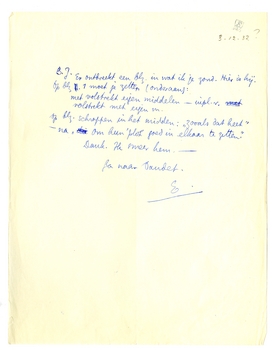 3.12.52?
B.J. Er ontbreekt een blz. in wat ik je zond. Hier is hij.
Op blz. 7 moet je zetten (onderaan):
met volstrekt eigen middelen — inpl. v.
volstrekt met eigen m.
Op blz. schrappen in het midden: "zoals dat heet
— na, om hun 'plot goed in elkaar te zetten"
Dank. Ik weer hem —
Ga naar
S.